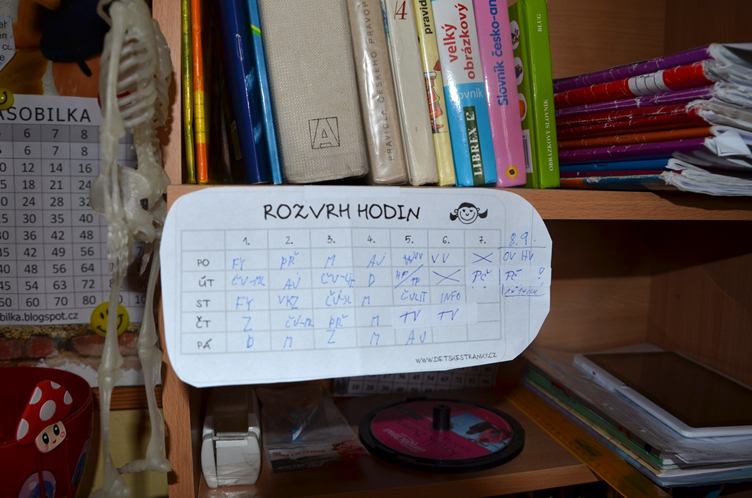 ASOBILKA
6 7 8
12 14 16
18 21 24
24 28 32
30 35 40
36 42 48
42 49 56
48 56 64
54 63 72
60 70 80
bilka.blogspot.cz
A
PRAVIDLA ČESKÉHO PRAVOP
4
pravid
velký
obrázkový
slovník
LIBREX
Slovník česko-an
OBRÁZKOVÝ SLOVNÍK
ROZVRH HODIN
1. 2. 3. 4. 5. 6. 7. 8.9.
PO FY PŘ M AJ VV X OV HV
ÚT AJ D X PČ PČ !
ST FY VKZ M INFO
ČT Z PŘ M TV TV
PÁ D M Z M AJ
WWW.DETSKESTRANKY.CZ